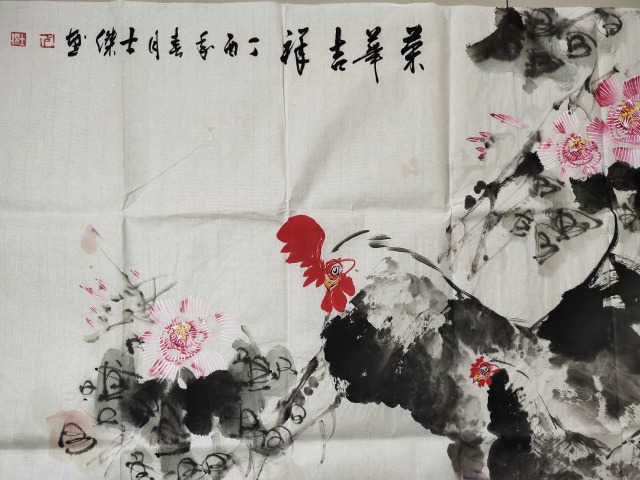 荣華吉祥 丁酉季春月士傑画